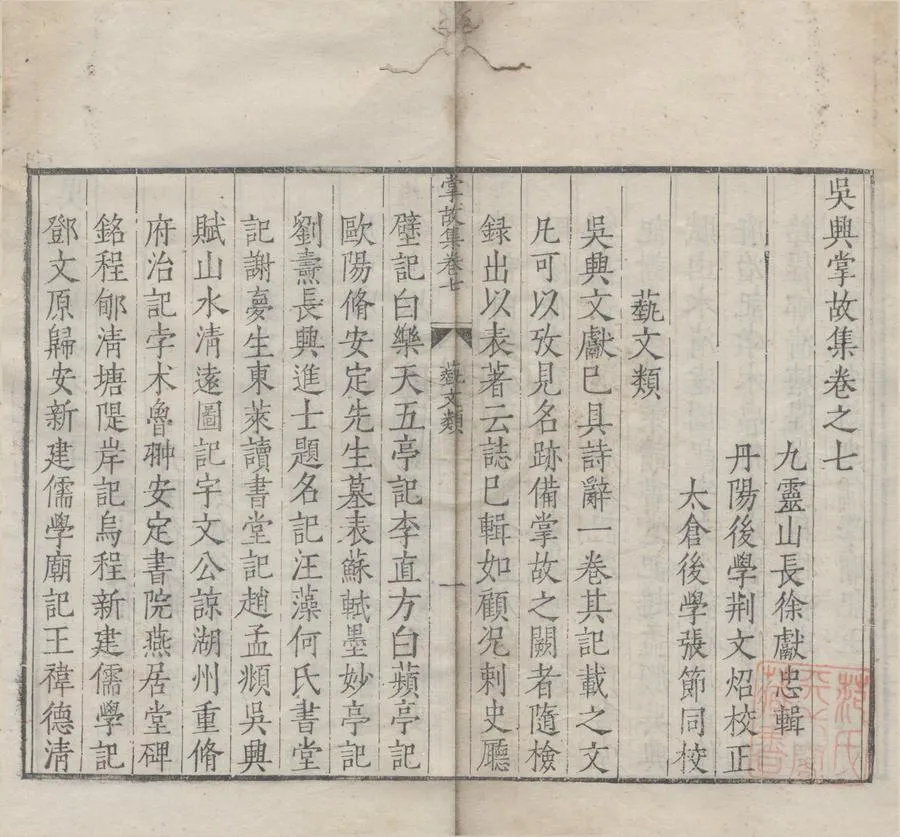 吳興掌故集卷之七
九靈山長徐獻忠輯
丹陽後學荆文炤校正
太倉後學張節同校
蓺文類
吳興文獻已具詩辭一卷其記載之文
凡可以攷見名跡備掌故之闕者隨檢
録出以表著云誌已輯如顧况刺史廳
掌故集卷七 蓺文類 一
壁記白樂天五亭記李直方白蘋亭記
歐陽脩安定先生墓表蘇軾墨妙亭記
劉燾長興進士題名記汪藻何氏書堂
記謝𡕢生東萊讀書堂記趙孟頫吳興
賦山水清遠圖記宇文公諒湖州重脩
府治記孛术魯翀安定書院燕居堂碑
銘程郇清塘隄岸記烏程新建儒學記
鄧文原歸安新建儒學廟記王禕德清